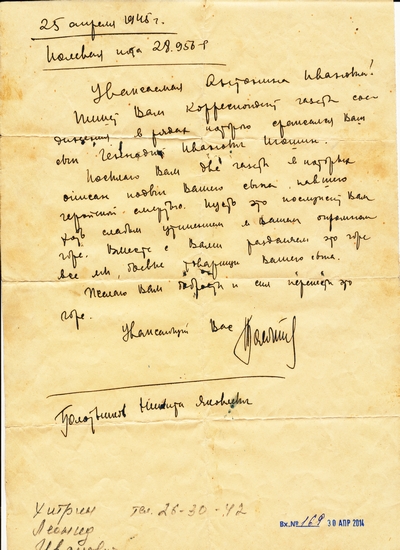 25 апреля 1945 г.
Полевая почта 28.956-Р
Уважаемая Антонина Ивановна!
Пишет Вам корреспондент газеты сое-
динения в рядах которого сражался Ваш
сын Геннадий Иванович
Посылаю Вам две газеты в которых
описан подвиг Вашего сына, павшего
геройской смертью. Пусть это послужит Вам
хоть слабым утешением в Вашем огромном
горе. Вместе с Вами разделяем это горе
все мы, боевые товарищи Вашего сына.
Желаю Вам бодрости и сил перенести это
горе.
Уважающий Вас
Болотников Никита Яковлевич
Хитрин тел. 26-30-42
Леонид
Иванович
Вх.№ 169 30 АПР 2014